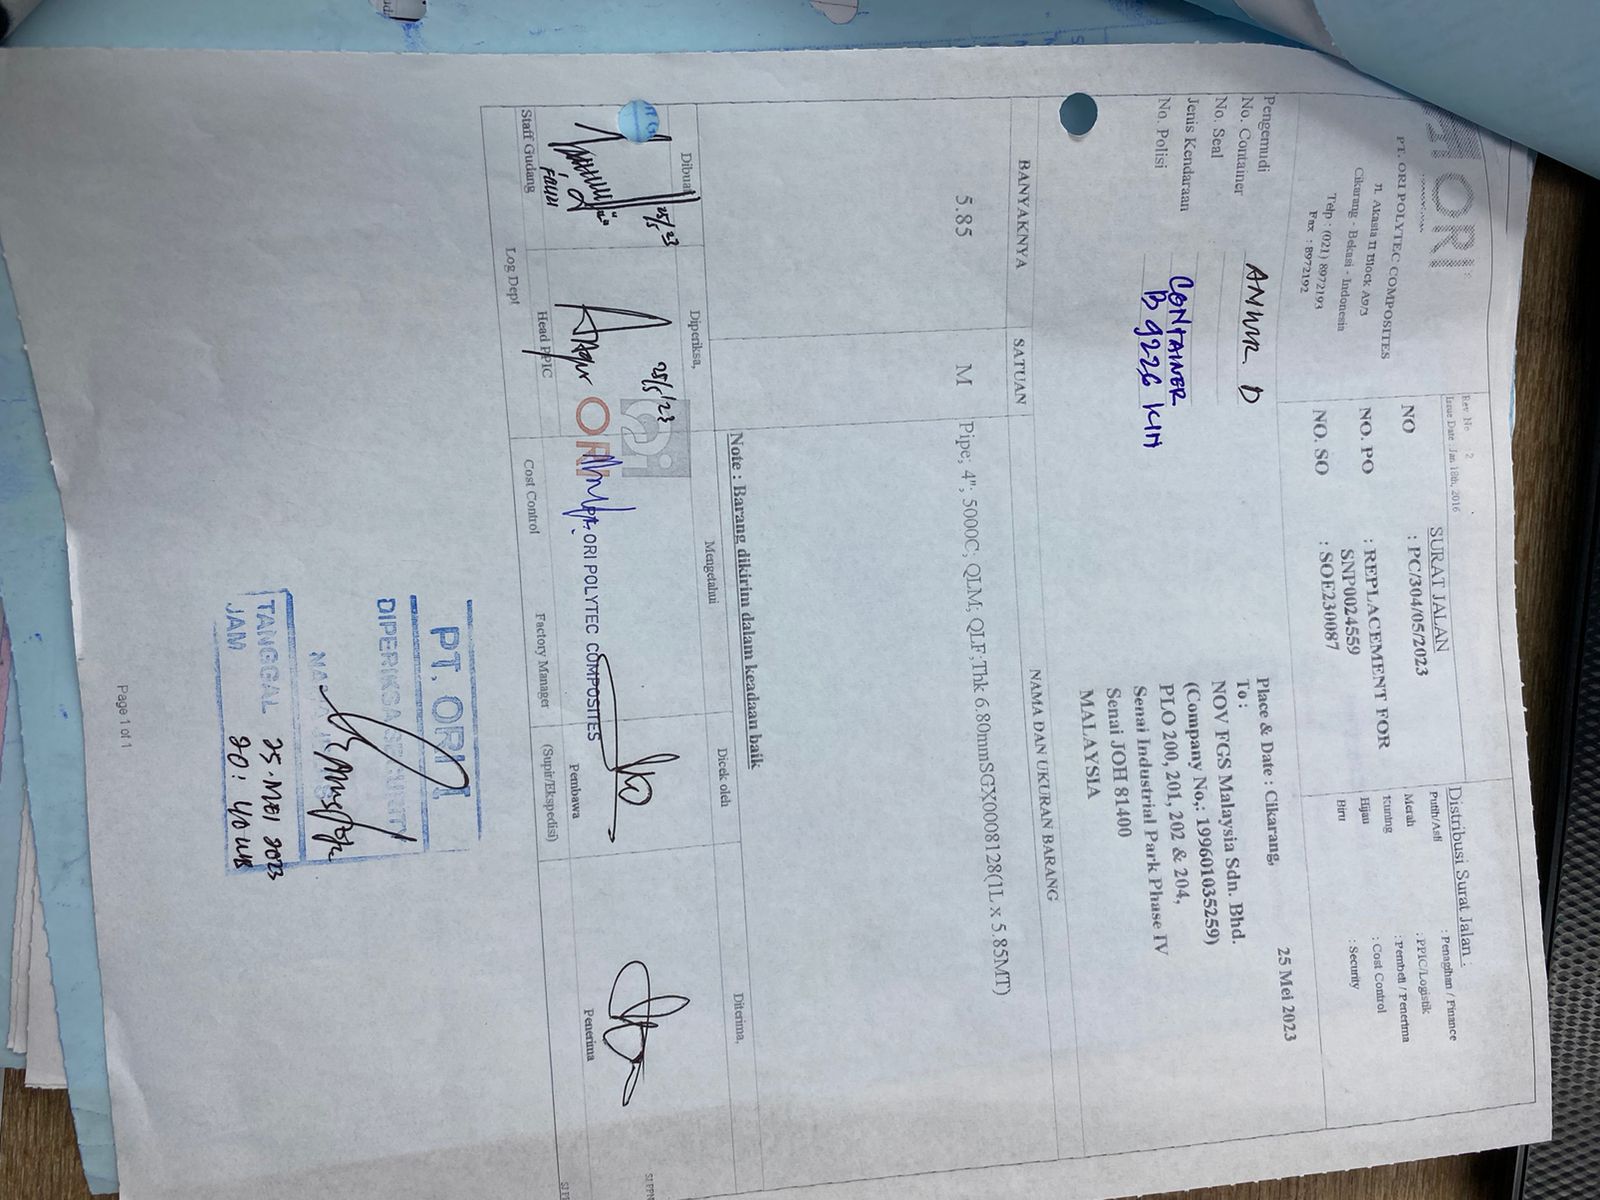 ORI
PT. ORI POLYTEC COMPOSITES
Jl. Akasia II Block A9/3
Cikarang - Bekasi - Indonesia
Telp : (021) 8972193
Fax : 8972192
Rev No 2
Issue Date : Jan 18th, 2016
SURAT JALAN
NO : PC/304/05/2023
NO. PO : REPLACEMENT FOR
SNP0024559
NO. SO : SOE230087
Distribusi Surat Jalan :
Putih/Asli : Penagihan / Finance
Merah : PPIC/Logistik
Kuning : Pembeli / Penerima
Hijau : Cost Control
Biru : Security
Pengemudi
No. Container
No. Seal
Jenis Kendaraan CONTAINER
No. Polisi B 9226 KIH
Place & Date : Cikarang, 25 Mei 2023
To :
NOV FGS Malaysia Sdn. Bhd.
(Company No,: 199601035259)
PLO 200, 201, 202 & 204,
Senai Industrial Park Phase IV
Senai JOH 81400
MALAYSIA
BANYAKNYA SATUAN NAMA DAN UKURAN BARANG
5.85 M Pipe; 4"; 5000C; QLM; QLF;Thk 6.80mmSGX0008128(1L x 5.85MT)
Note : Barang dikirim dalam keadaan baik
Dibuat Diperiksa, Mengetahui Dicek oleh Diterima,
25/5/23 25/5/23
ORI
PT. ORI POLYTEC COMPOSITES
Pembawa Penerima
Staff Gudang Head PPIC Cost Control Factory Manager (Supir/Ekspedisi)
Log Dept
PT. ORI
DIPERIKSA SECURITY
TANGGAL 25 · MEI 2023
JAM 20 : 40 WIB
Page 1 of 1